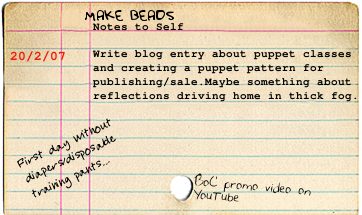 MAKE BEADS
Notes to Self
20/2/07
Write blog entry about puppet classes
and creating a puppet pattern for
publishing/sale.Maybe something about
reflections driving home in thick fog.
First day without
diapers/disposable
training pants...
BoC promo video on
YouTube